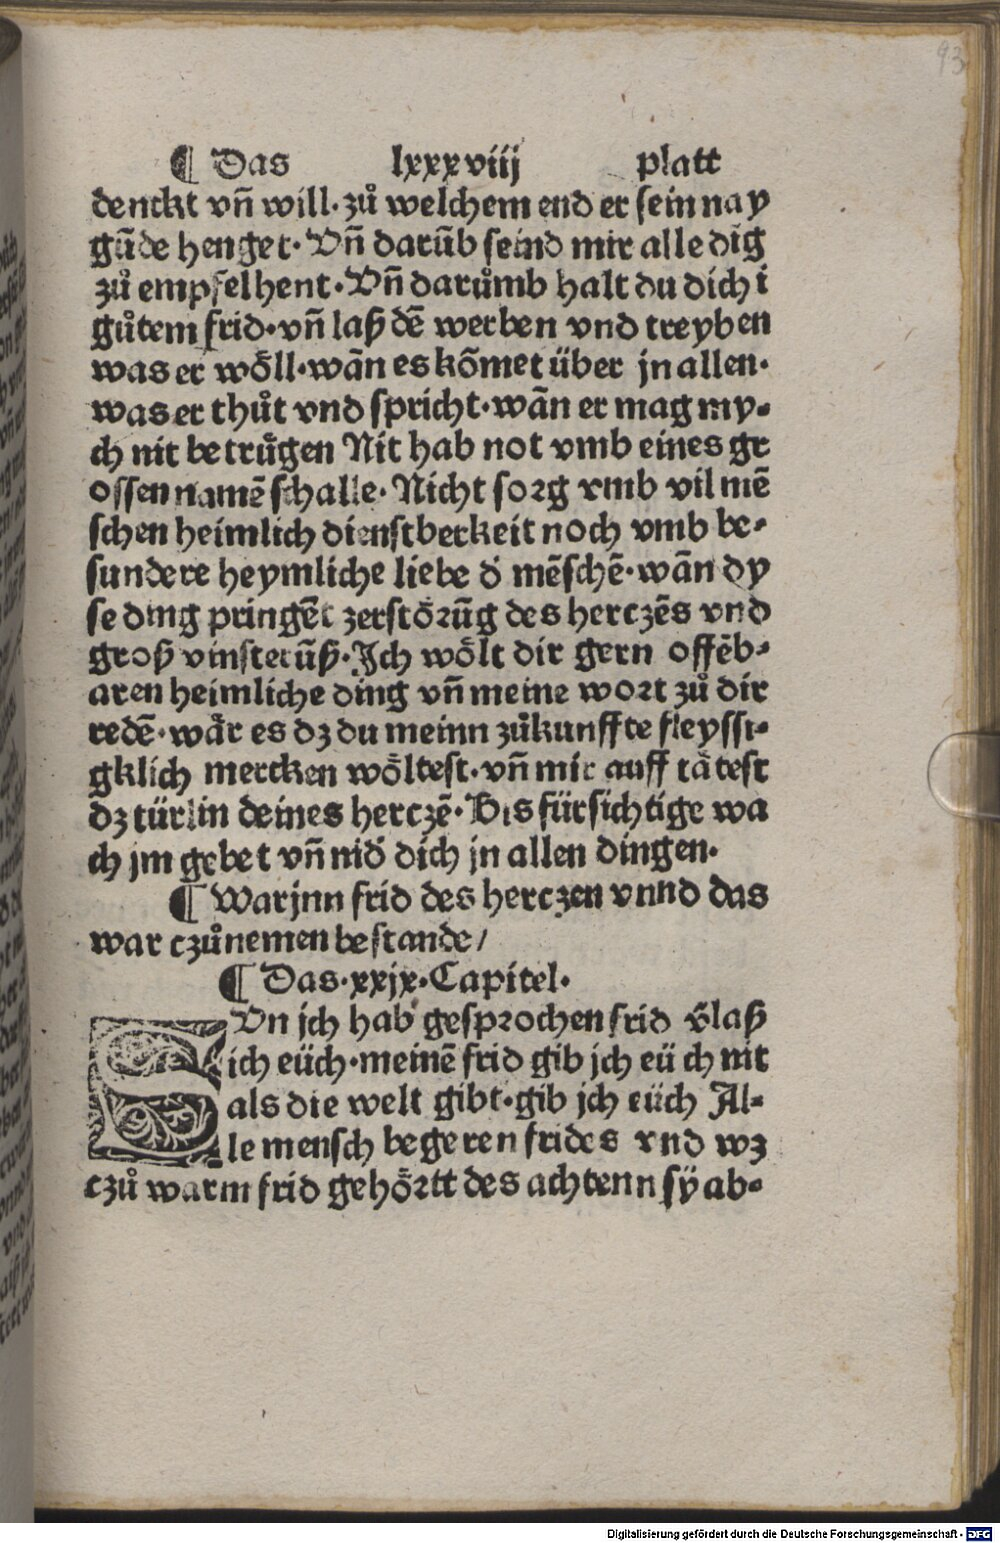 93
¶ Das lxxxviij platt
denckt vn̄ will· zů welchem end er sein nay
gūde henget· Vn̄ darūb seind mir alle dīg
zů empfelhent· Vn̄ darůmb halt du dich ī
gůtem frid· vn̄ laß dē werben vnd treyben
was er wo᷑ll· wān es kōmet über jn allen·
was er thůt vnd spricht· wān er mag my⸗
ch nit betrůgen Nit hab not vmb eines gr
ossen namē schalle· Nicht sorg vmb vil mē
schen heimlich dienstberkeit noch vmb be⸗
sundere heymliche liebe d᷑ mēschē· wān dy
se ding pringēt zerstöꝛūg des herczēs vnd
groß vinsterūß· Ich wölt dir gern offēb⸗
aren heimliche ding vn̄ meine woꝛt zů dir
redē· wär es dz du meinn zůkunffte fleyssi⸗
gklich mercken wöltest· vn̄ mir auff tätest
dz türlin deines herczē· Bis fürsichtige wa
ch jm gebet vn̄ nid᷑ dich jn allen dingen·
¶ Warjnn frid des herczen vnnd das
war czůnemen bestande/
¶ Das· xxjx· Capitel·
Vn jch hab gespꝛochen frid v᷑laß
ich eüch· meinē frid gib jch eüch nit
als die welt gibt· gib jch eüch Al⸗
le mensch begeren frides vnd wz
czů warm frid gehöꝛtt des achtenn sÿ ab⸗
Digitalisierung gefördert durch die Deutsche Forschungsgemeinschaft - DFG